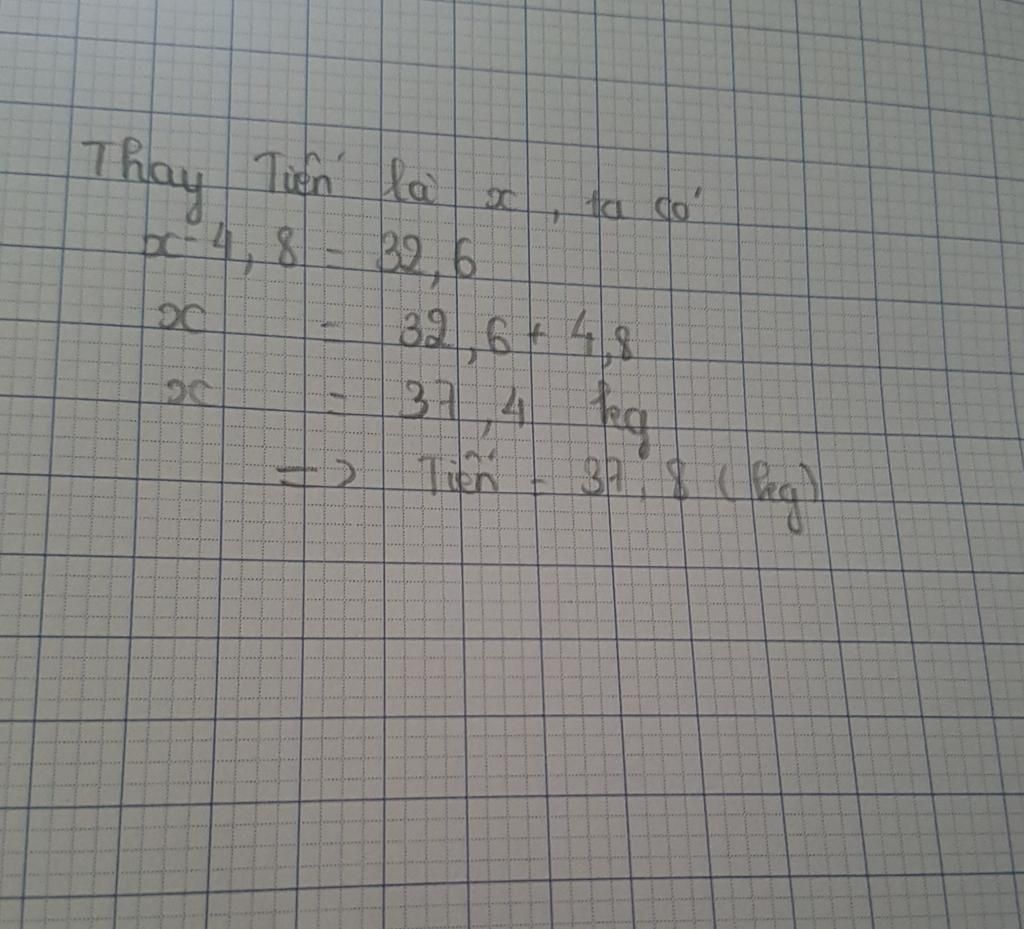 Thay Tiến là x, ta có
x - 4,8 = 32,6
x = 32,6 + 4,8
x = 37,4 kg
=> Tiến = 37,8 (kg)